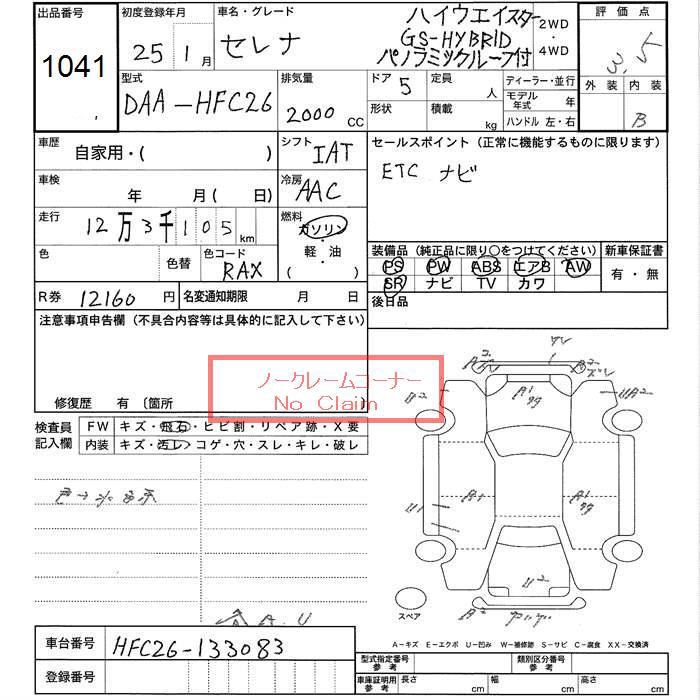 出品番号
1041
初度登録年月
25年1月
車名・グレード
セレナ
ハイウエイスター
GS-HYBRID
パノラミックルーフ付
2WD
・
4WD
評価点
3.5
外装 内装
B
型式
DAA-HFC26
排気量
2000 CC
ドア 5
形状
定員 人
積載 kg
ディーラー・並行
モデル年式 年
ハンドル 左・右
車歴
自家用・( )
シフト
IAT
セールスポイント(正常に機能するものに限ります)
ETC ナビ
車検
年 月( 日)
冷房
AAC
走行
12万3千105km
燃料
ガソリン
・
軽・油
( )
色
色替
色コード
RAX
装備品(純正品に限り○をつけてください)
新車保証書
PS PW ABS エアB AW
SR ナビ TV カワ
有・無
R券 12160円
名変通知期限 月 日
後日品
注意事項申告欄(不具合内容等は具体的に記入して下さい)
ノークレームコーナー
No Claim
修復歴 有〔箇所
検査員
記入欄
FW キズ・飛石・ヒビ割・リペア跡・X要
内装 キズ・汚レ・コゲ・穴・スレ・キレ・破レ
スペア
A-キズ E-エクボ U-凹み W-補修跡 S-サビ C-腐食 XX-交換済
車台番号 HFC26-133083
登録番号
型式指定番号
参考
類別区分番号
参考
車庫証明用
参考
長さ cm 幅 cm 高さ cm